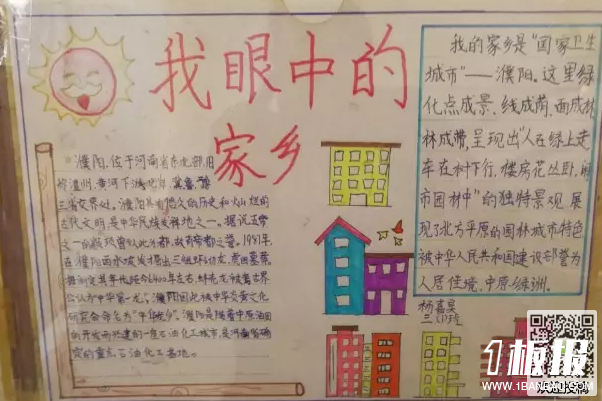 我眼中的
家乡
濮阳，位于河南省东北部，旧
称澶州，黄河下游北岸，冀鲁豫
三省交界处。濮阳具有悠久的历史和灿烂的
古代文明，是中华民族发祥地之一。据说五帝
之一的颛顼曾以此为都，故有帝都之誉。1987年
在濮阳西水坡发掘出三组蚌砌龙虎图案，
据测定其年代距今6400年左右，蚌壳龙被考古界
公认为中华第一龙，濮阳因此被中华炎黄文化
研究会命名为"中华龙乡"。濮阳是随着中原油田
的开发而兴建的一座石油化工城市，是河南省确
定的重点石油化工基地。
我的家乡是"国家卫生
城市"——濮阳，这里绿
化点成景、线成荫、面成林
林成带，呈现出"人在绿上走
车在树下行，楼房花丛卧，闹
市园林中"的独特景观，展
现了北方平原的园林城市特色
被中华人民共和国建设部誉为
人居佳境，中原绿洲。
杨嘉昊
三（1）班
1板报
WWW.1BANBAO.COM
欢迎投稿